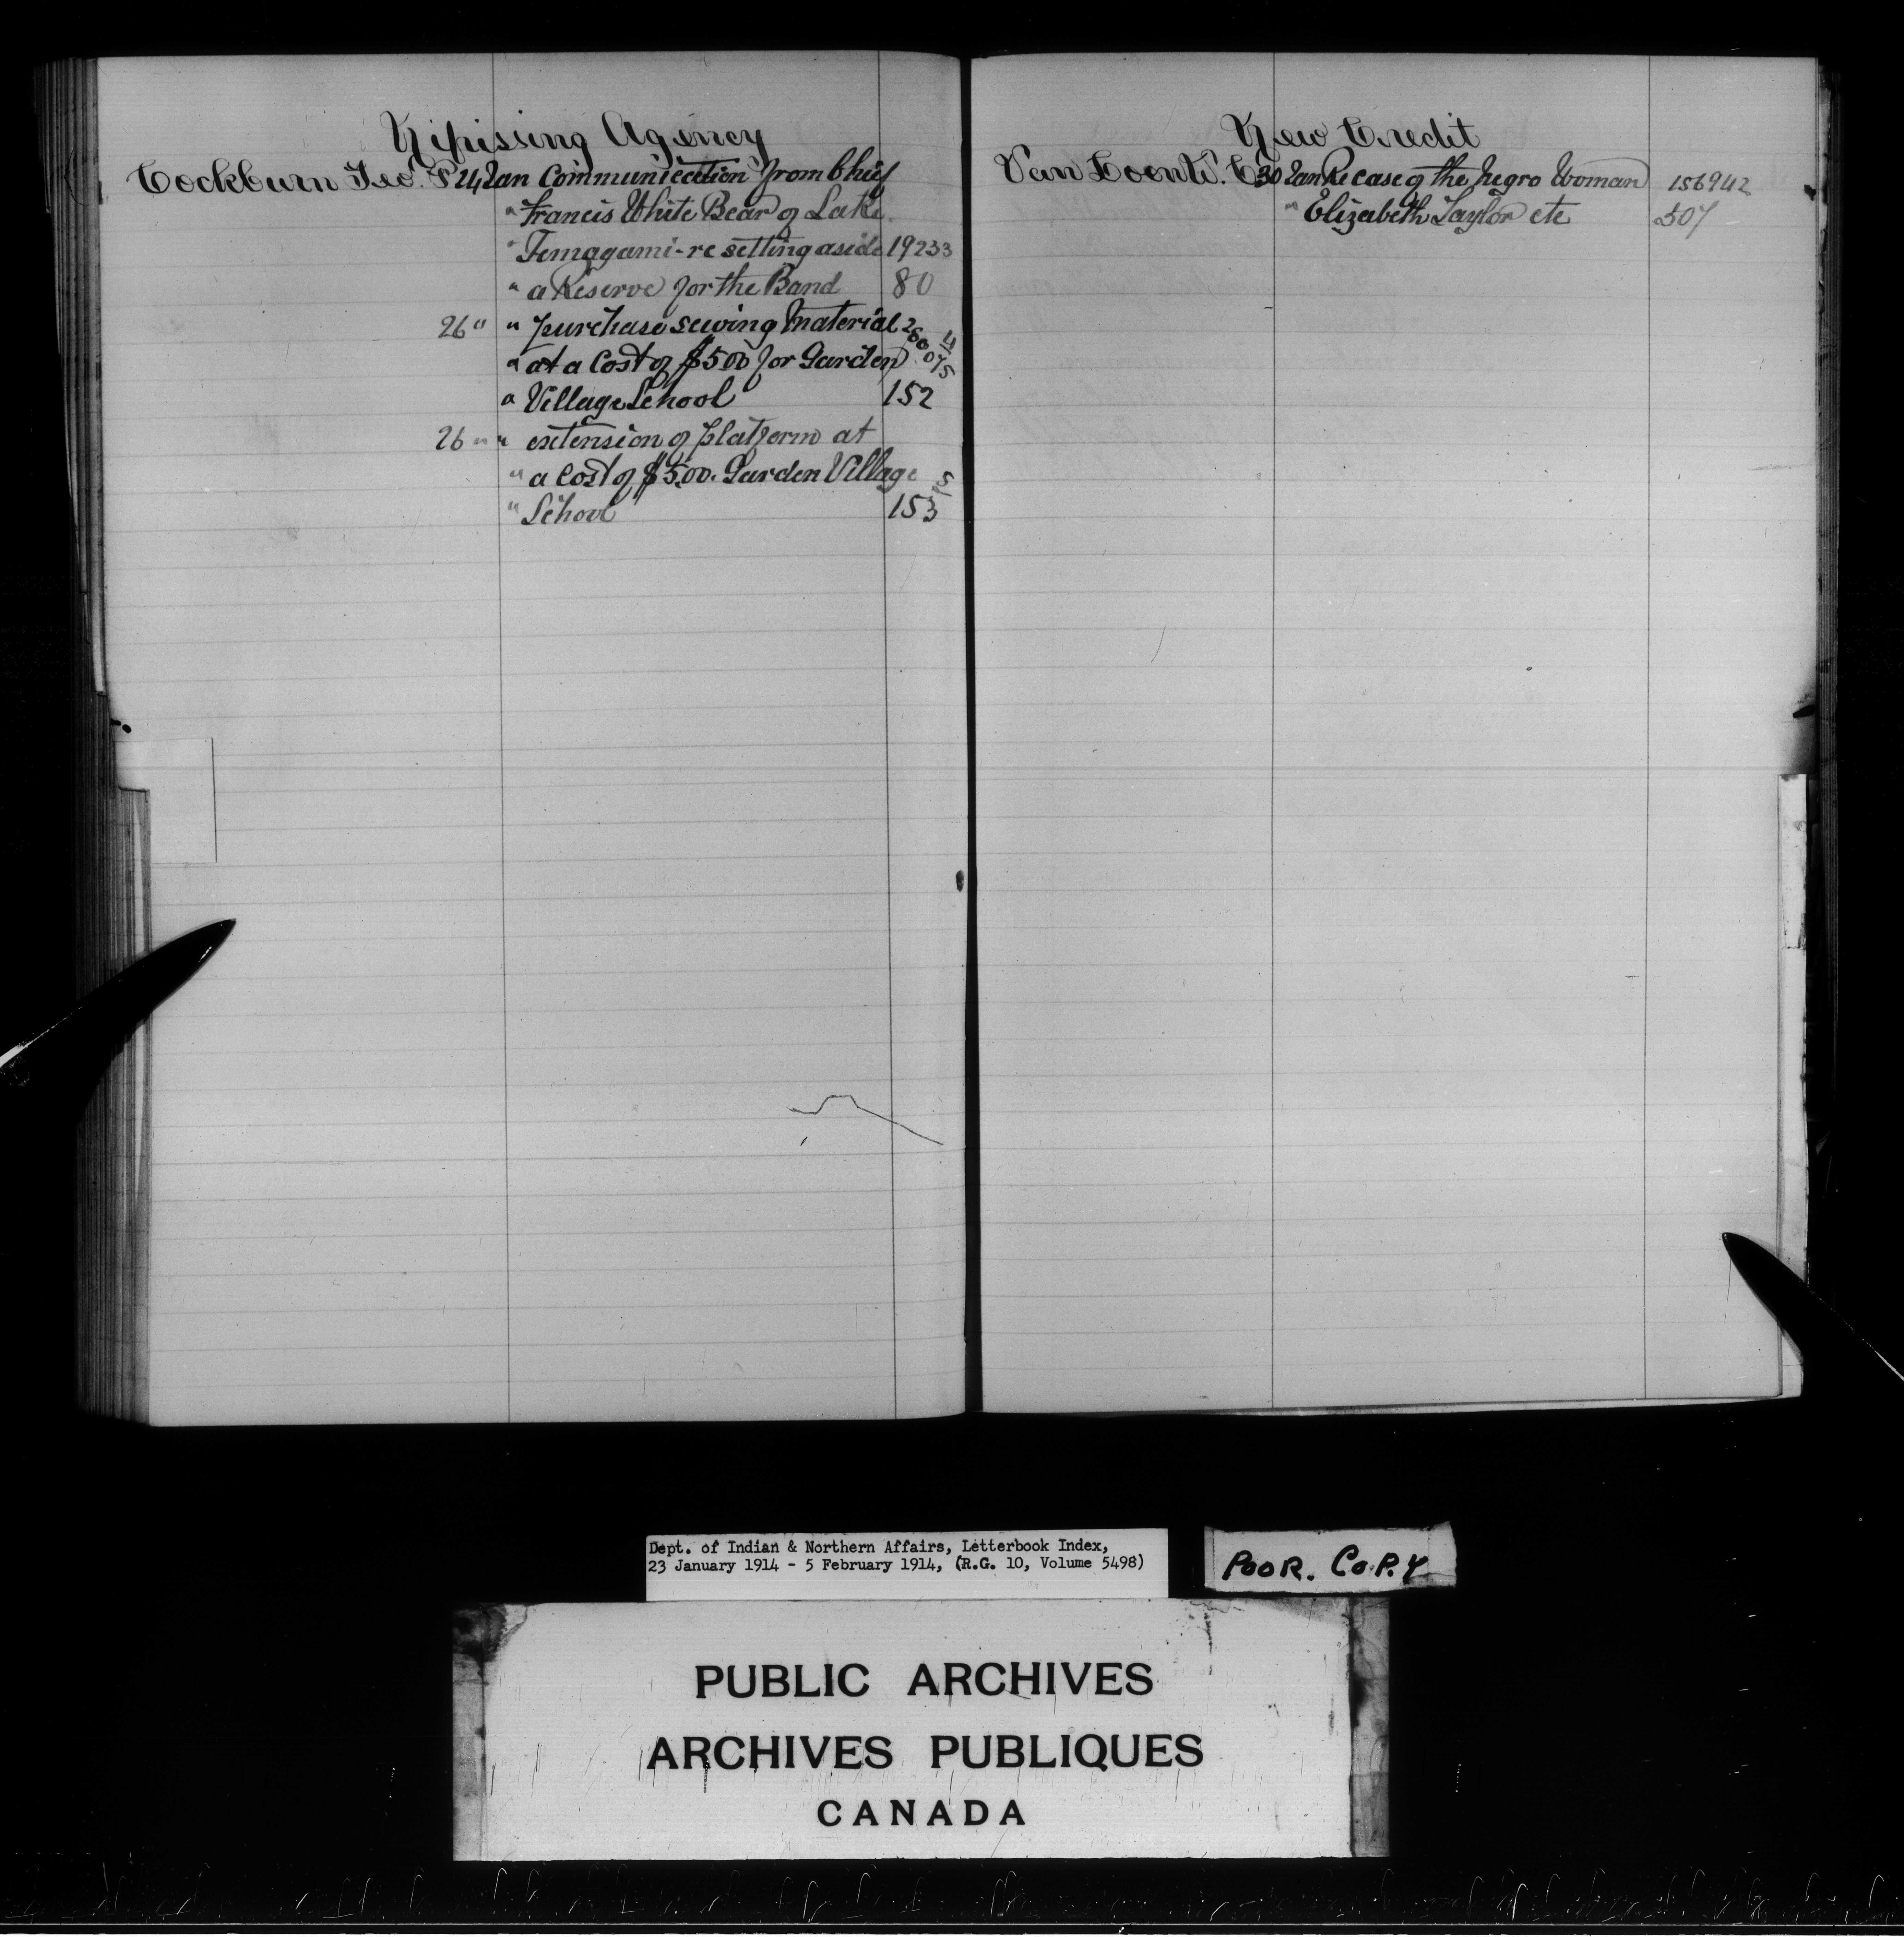 Nipissing Agency
Cockburn Geo. P 24 Jan Communication from Chief
" Francis White Bear of Lake
" Temagami - re setting aside 19233
" a Reserve for the Band 80
26 " " purchase sewing Material
" at a Cost of $5.00 for Garden
" Village School 152
26 " " extension of platform at
" a Cost of $5.00. Garden Village
" School 153
New Credit
Van Loon W. C. 30 Jan Re case of the Negro Woman 156942
" Elizabeth Taylor etc 507
Dept. of Indian & Northern Affairs, Letterbook Index,
23 January 1914 - 5 February 1914, (R.G. 10, Volume 5498)
POOR. COPY
PUBLIC ARCHIVES
ARCHIVES PUBLIQUES
CANADA